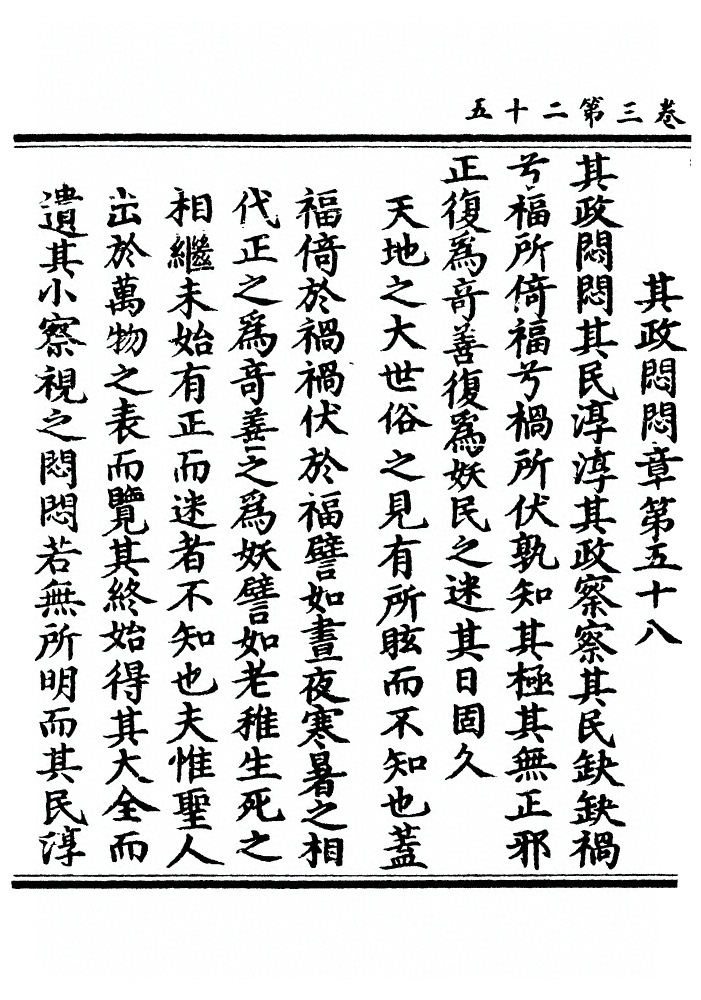 卷三第二十五
其政悶悶章第五十八
其政悶悶其民淳淳其政察察其民缺缺禍
兮福所倚福兮禍所伏孰知其極其無正邪
正復爲竒善復爲妖民之迷其日固久
天地之大世俗之見有所眩而不知也蓋
福倚於禍禍伏於福譬如晝夜寒暑之相
代正之爲竒善之爲妖譬如老稚生死之
相繼未始有正而迷者不知也夫惟聖人
出於萬物之表而覽其終始得其大全而
遺其小察視之悶悶若無所明而其民淳